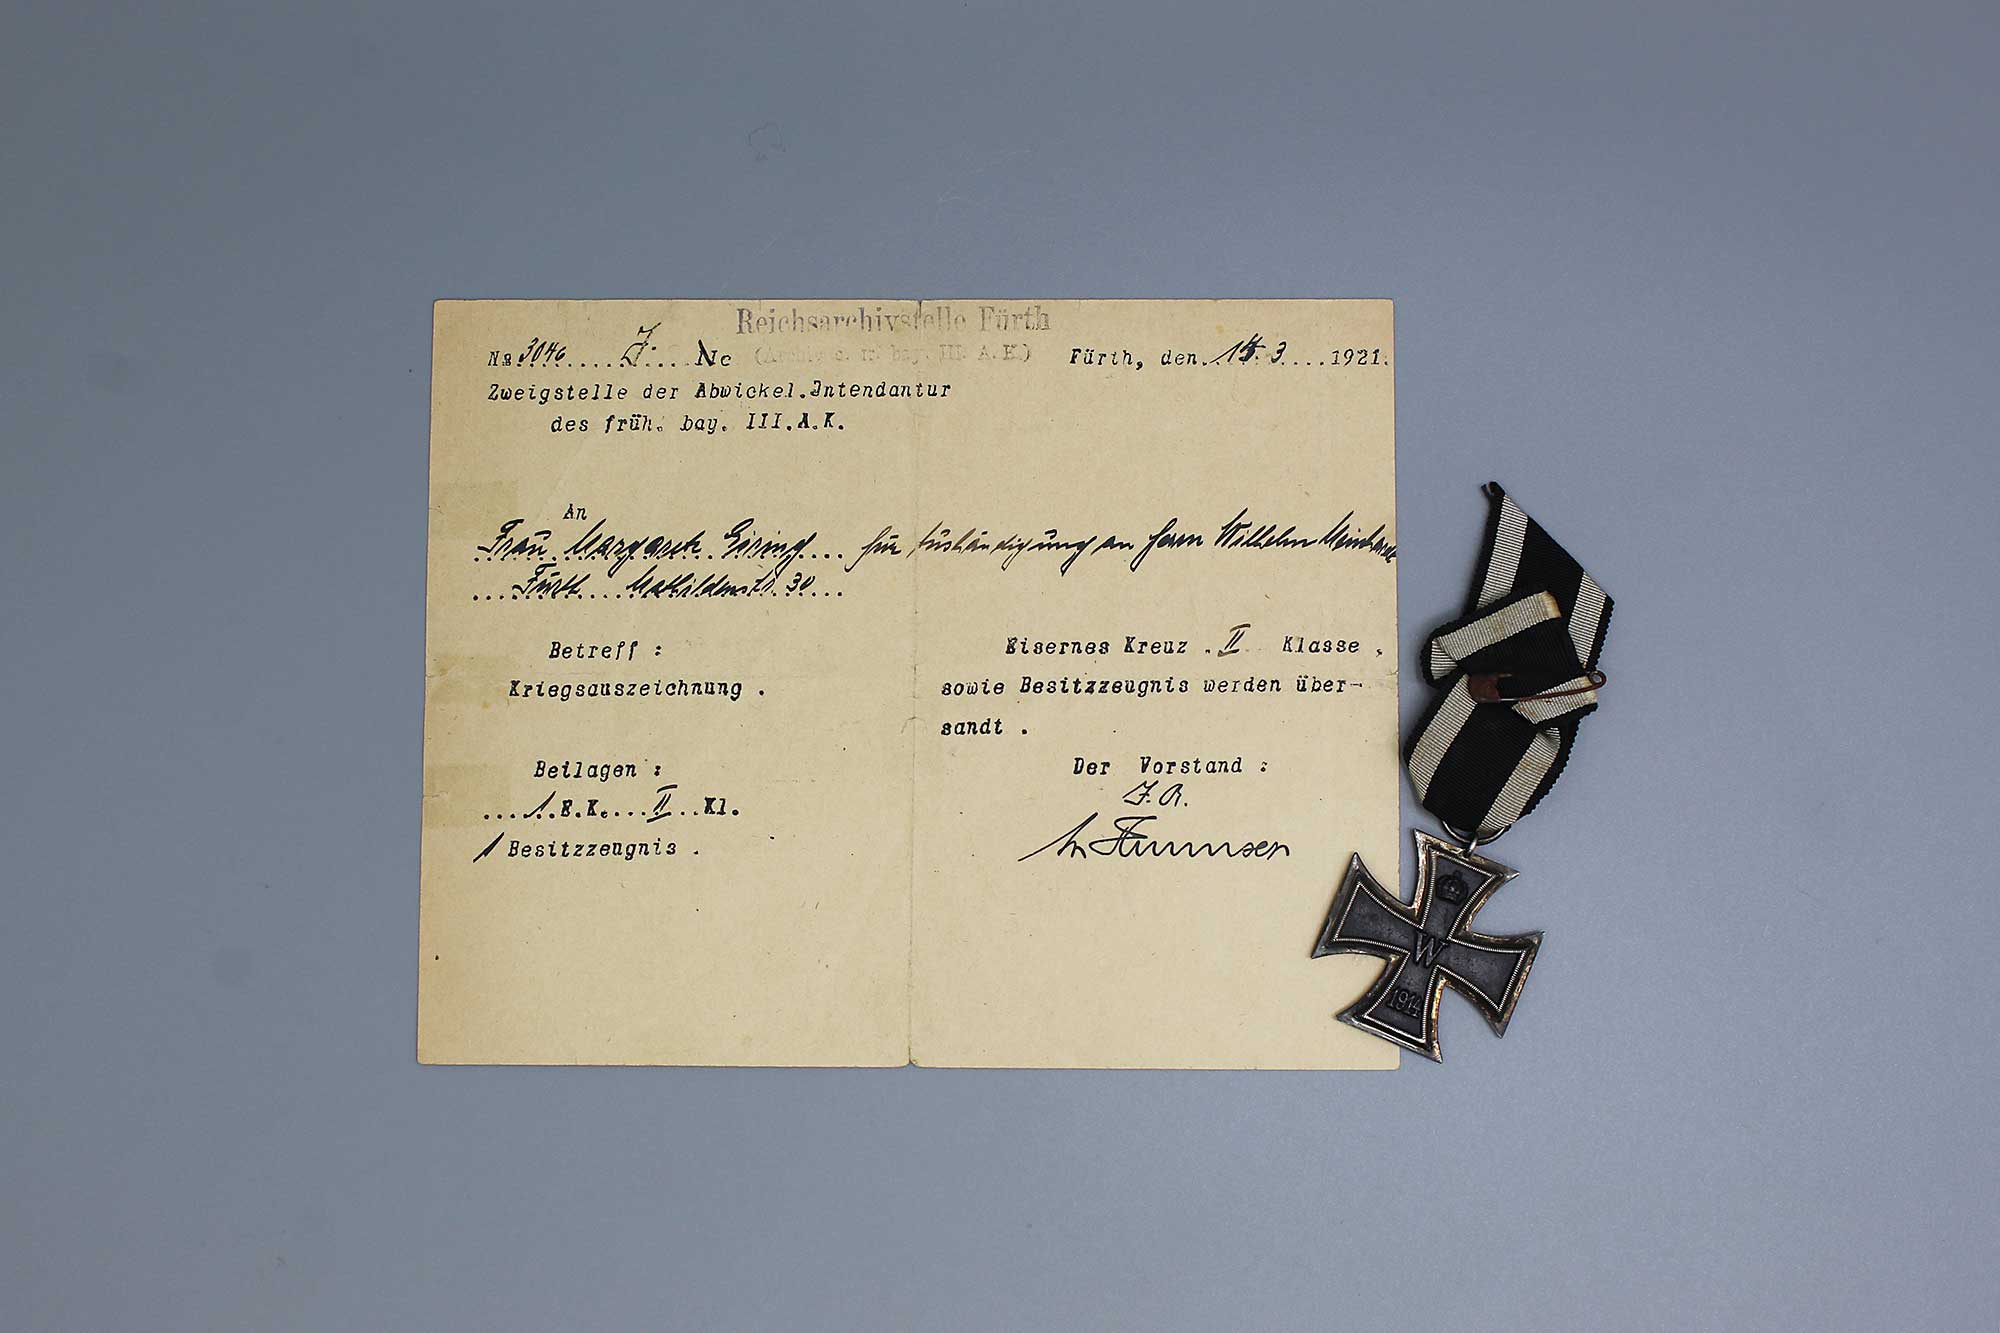 Reichsarchivstelle Fürth
(Archiv d. fr. bay. III. A. K.)
No 3046 .... J. ... Nc
Fürth, den. 14. 3 ....1921.
Zweigstelle der Abwickel.Intendantur
des früh. bay. III.A.K.
An
Frau Margarete Eising ... für Aushändigung an Herrn Wilhelm
... Fürth .... Mathildenstr. 30 ...
Betreff :
Kriegsauszeichnung .
Beilagen :
... 1 .E.K. ... II .. Kl.
1 Besitzzeugnis .
Eisernes Kreuz . II Klasse .
sowie Besitzzeugnis werden über-
sandt .
Der Vorstand :
W
1914